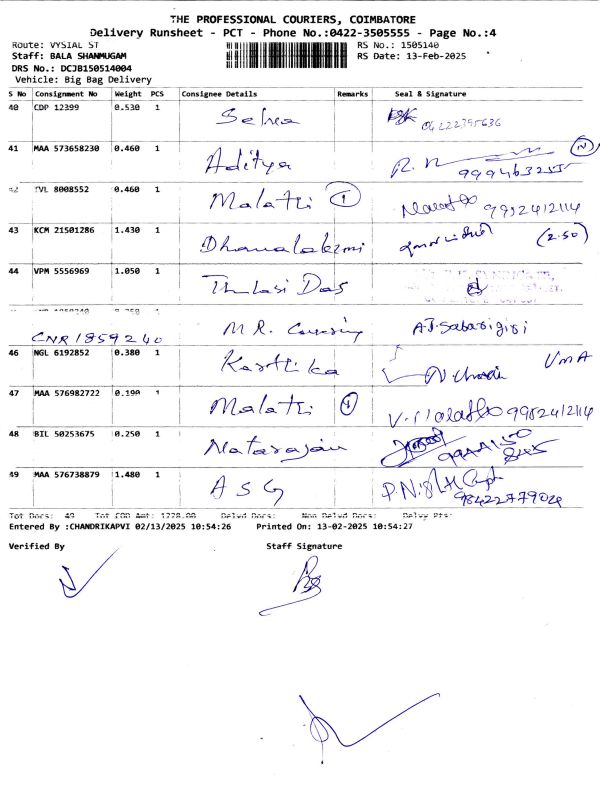 THE PROFESSIONAL COURIERS, COIMBATORE
Delivery Runsheet - PCT - Phone No.:0422-3505555 - Page No.:4
Route: VYSIAL ST RS No.: 1505140
Staff: BALA SHANMUGAM RS Date: 13-Feb-2025
DRS No.: DCJB150514004
Vehicle: Big Bag Delivery
S No Consignment No Weight PCS Consignee Details Remarks Seal & Signature
40 CDP 12399 0.530 1 04222395636
41 MAA 573658230 0.460 1 Aditya
42 TVL 8008552 0.460 1 Malathi 1
43 KCM 21501286 1.430 1 Dhanalakzmi (2.50)
44 VPM 5556969 1.050 1 Thulasi Das
CNR 1859240 M.R. A.J.Sabarigiri
46 NGL 6192852 0.380 1 Karthika UMA
47 MAA 576982722 0.190 1 Malathi 9982412114
48 BIL 50253675 0.250 1 Natarajan
49 MAA 576738879 1.480 1 A S G
Tot Docs: 49 Tot COD Amt: 1228.00 Delvd Docs: Non Delvd Docs: Delvy Pts:
Entered By :CHANDRIKAPVI 02/13/2025 10:54:26 Printed On: 13-02-2025 10:54:27
Verified By Staff Signature